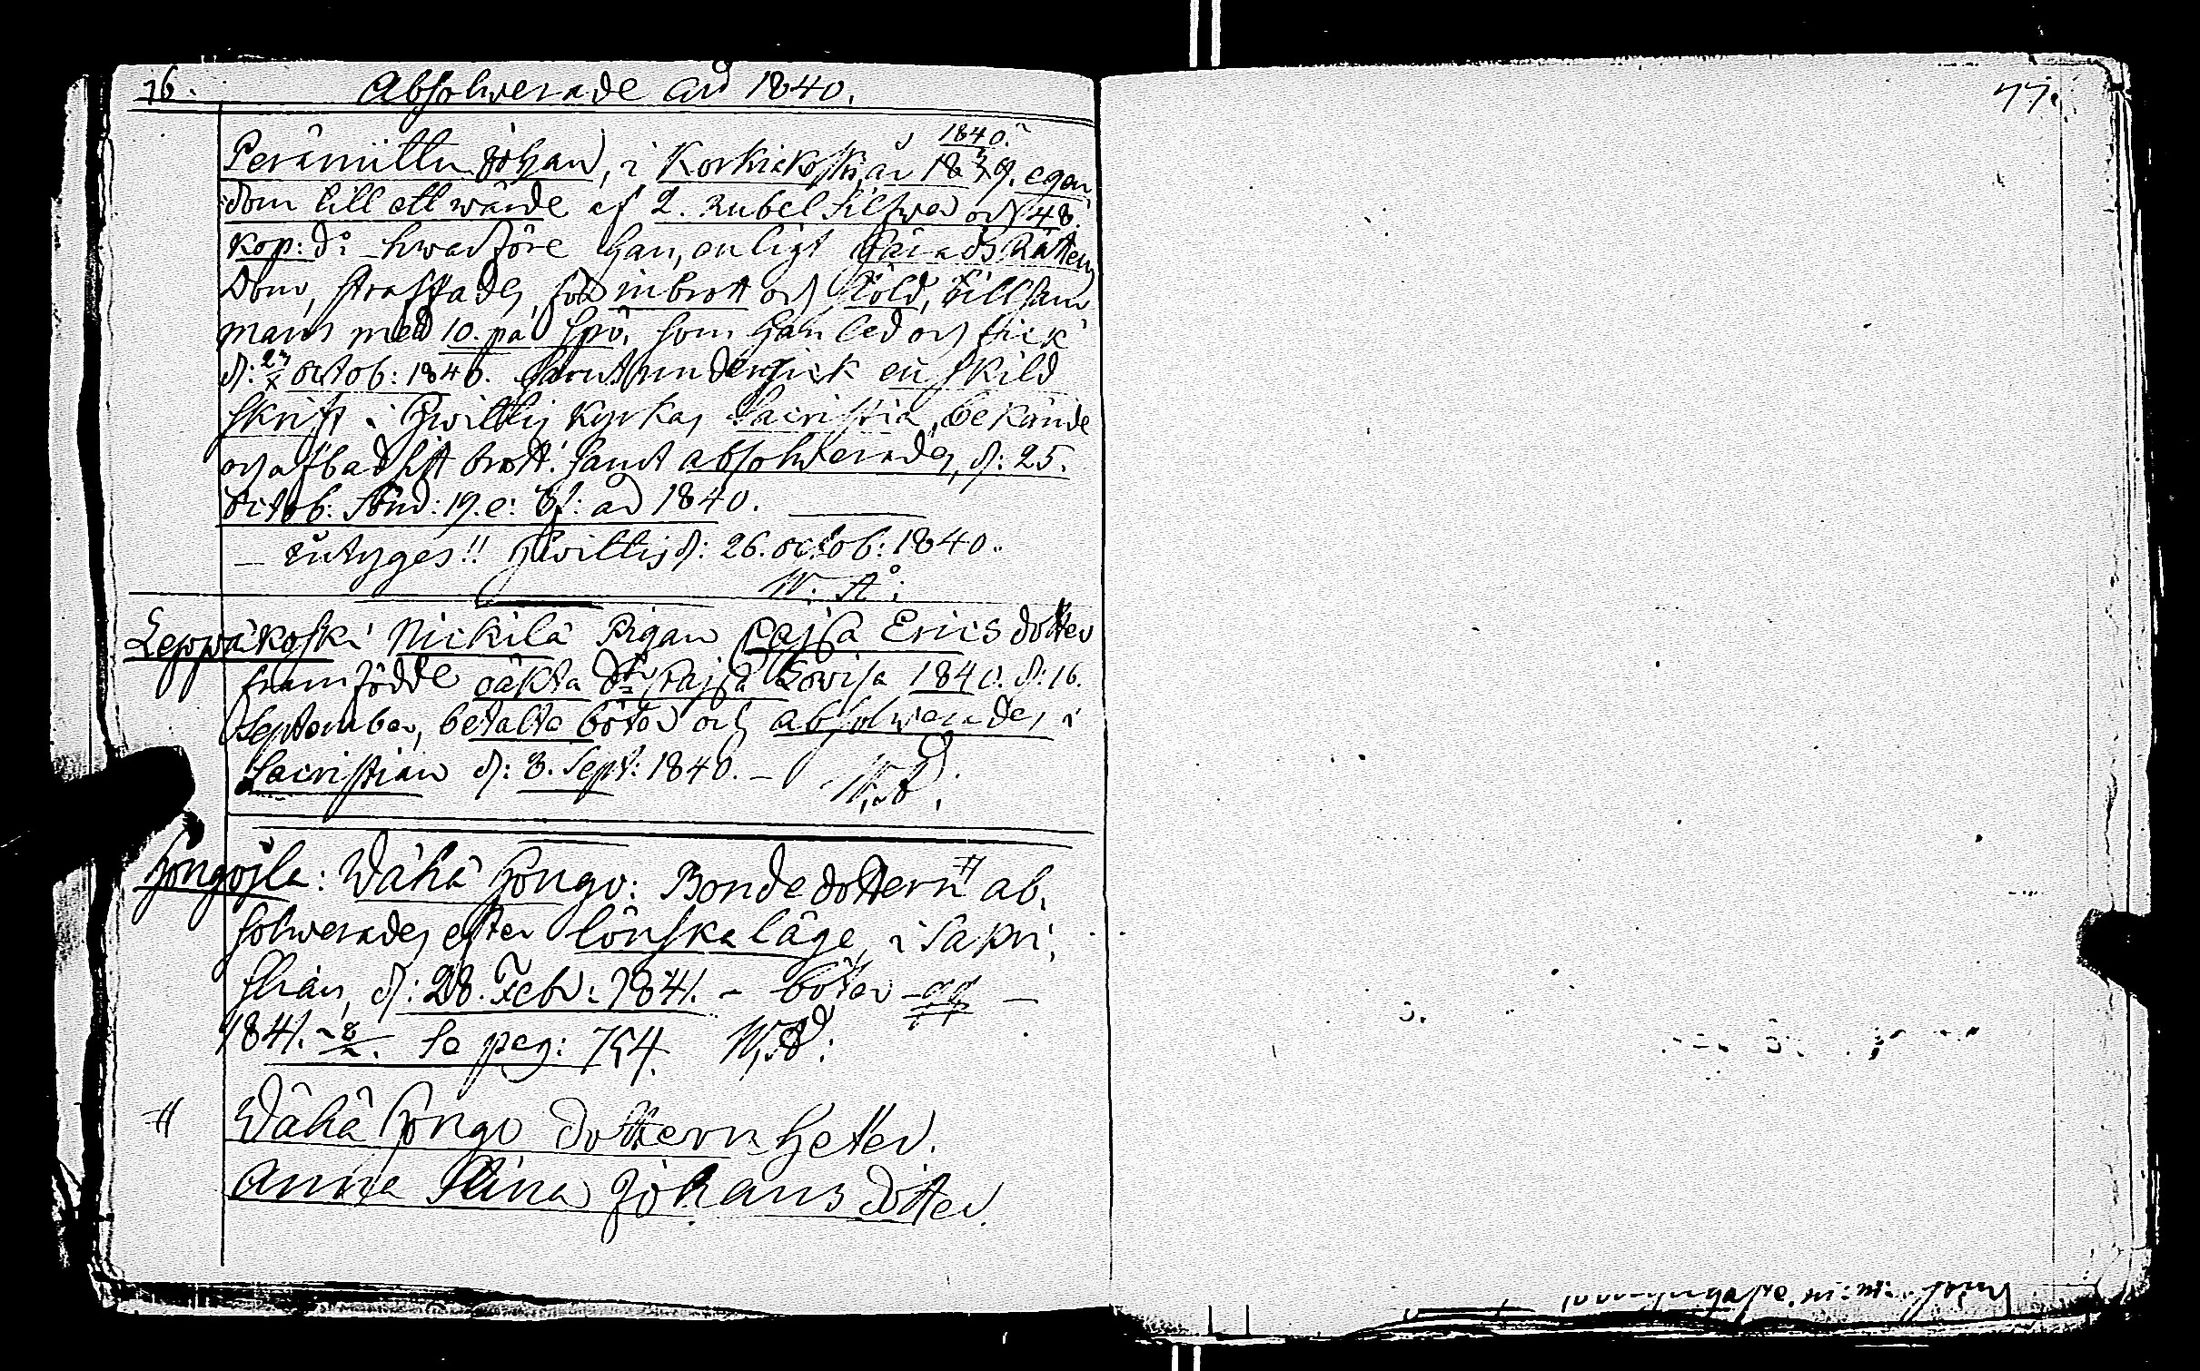 76.
Absolverade ad 1840.
Perämittu Johan, i Korkiakoski, år 18 9. egen
1840.
dom till ett wärde af 2. Rubel Silfwer och 48.
kop: do hwarföre han, enligt Härads Rättens
Dom, straffades för inbrott och stöld, tillsam
mans med 10. par spö, som han led och fick
d: 23/X octob: 1840. Samt undergick enskild
skrift i Hwittis Kyrkas Sacristia, bekände
och afbad sitt brott. samt absolverades, d: 25.
Octob: Sönd: 19. e: Tf: ad 1840.
— intyges!! Hwittis d: 26. octob: 1840.
Leppäkoski Nickilä Pigan Cajsa Ericsdotter
framfödde oäkta dr Cajsa Lovisa 1840. d: 16.
September, betalte böter och absolverades i
Sacristian d: 3. Sept: 1840. —
Hongojla: Wähä Hongo: Bondedottern # ab,
solverades efter lönskaläge, i Sakri,
stian, d: 28. Febr: 1841. — böter
1841. 8/2. Se pag: 754.
# Wähä Hongo dottern heter.
Anna Stina Johansdotter.
77.